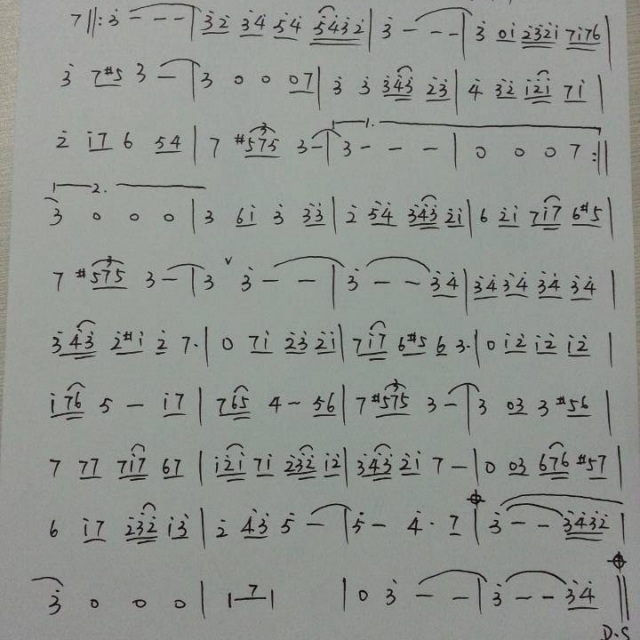 7 ||: 3̇ - - - | 3̇2̇ 3̇4̇ 5̇4̇ 5̇4̇3̇2̇ | 3̇ - - - | 3̇ 01̇ 2̇3̇2̇1̇ 71̇76 |
3̇ 7#5 3 - | 3 0 0 07 | 3̇ 3̇ 3̇4̇3̇ 2̇3̇ | 4̇ 3̇2̇ 1̇2̇1̇ 71̇ |
2̇ 1̇7 6 54 | 7 #575 3 3- | 1. 3 - - - | 0 0 0 7 :||
1 2. 3̇ 0 0 0 | 3 61̇ 3̇ 3̇3̇ | 2̇ 5̇4̇ 3̇4̇3̇ 2̇1̇ | 6 2̇1̇ 71̇7 6#5 |
7 #575 3 3 - | 3 v 3̇ - - | 3̇ - - 3̇4̇ | 3̇4̇ 3̇4̇ 3̇4̇ 3̇4̇ |
3̇4̇3̇ 2̇#1̇ 2̇ 7. | 0 71̇ 2̇3̇ 2̇1̇ | 71̇7 6#5 6 3. | 0 1̇2̇ 1̇2̇ 1̇2̇ |
1̇76 5 - 1̇7 | 765 4 - 56 | 7 #575 3 3 - | 3 03 3 #56 |
7 77 71̇7 67 | 1̇2̇1̇ 71̇ 2̇3̇2̇ 1̇2̇ | 3̇4̇3̇ 2̇1̇ 7 - | 0 03 676 #57 |
6 1̇7 2̇3̇2̇ 1̇3̇ | 2̇ 4̇3̇ 5̇ - | 5̇ - 4̇ . 7 | 3̇ - - 3̇4̇3̇2̇ |
3̇ 0 0 0 | |7| | 0 3̇ - - | 3̇ - - 3̇4̇ ||
D.S